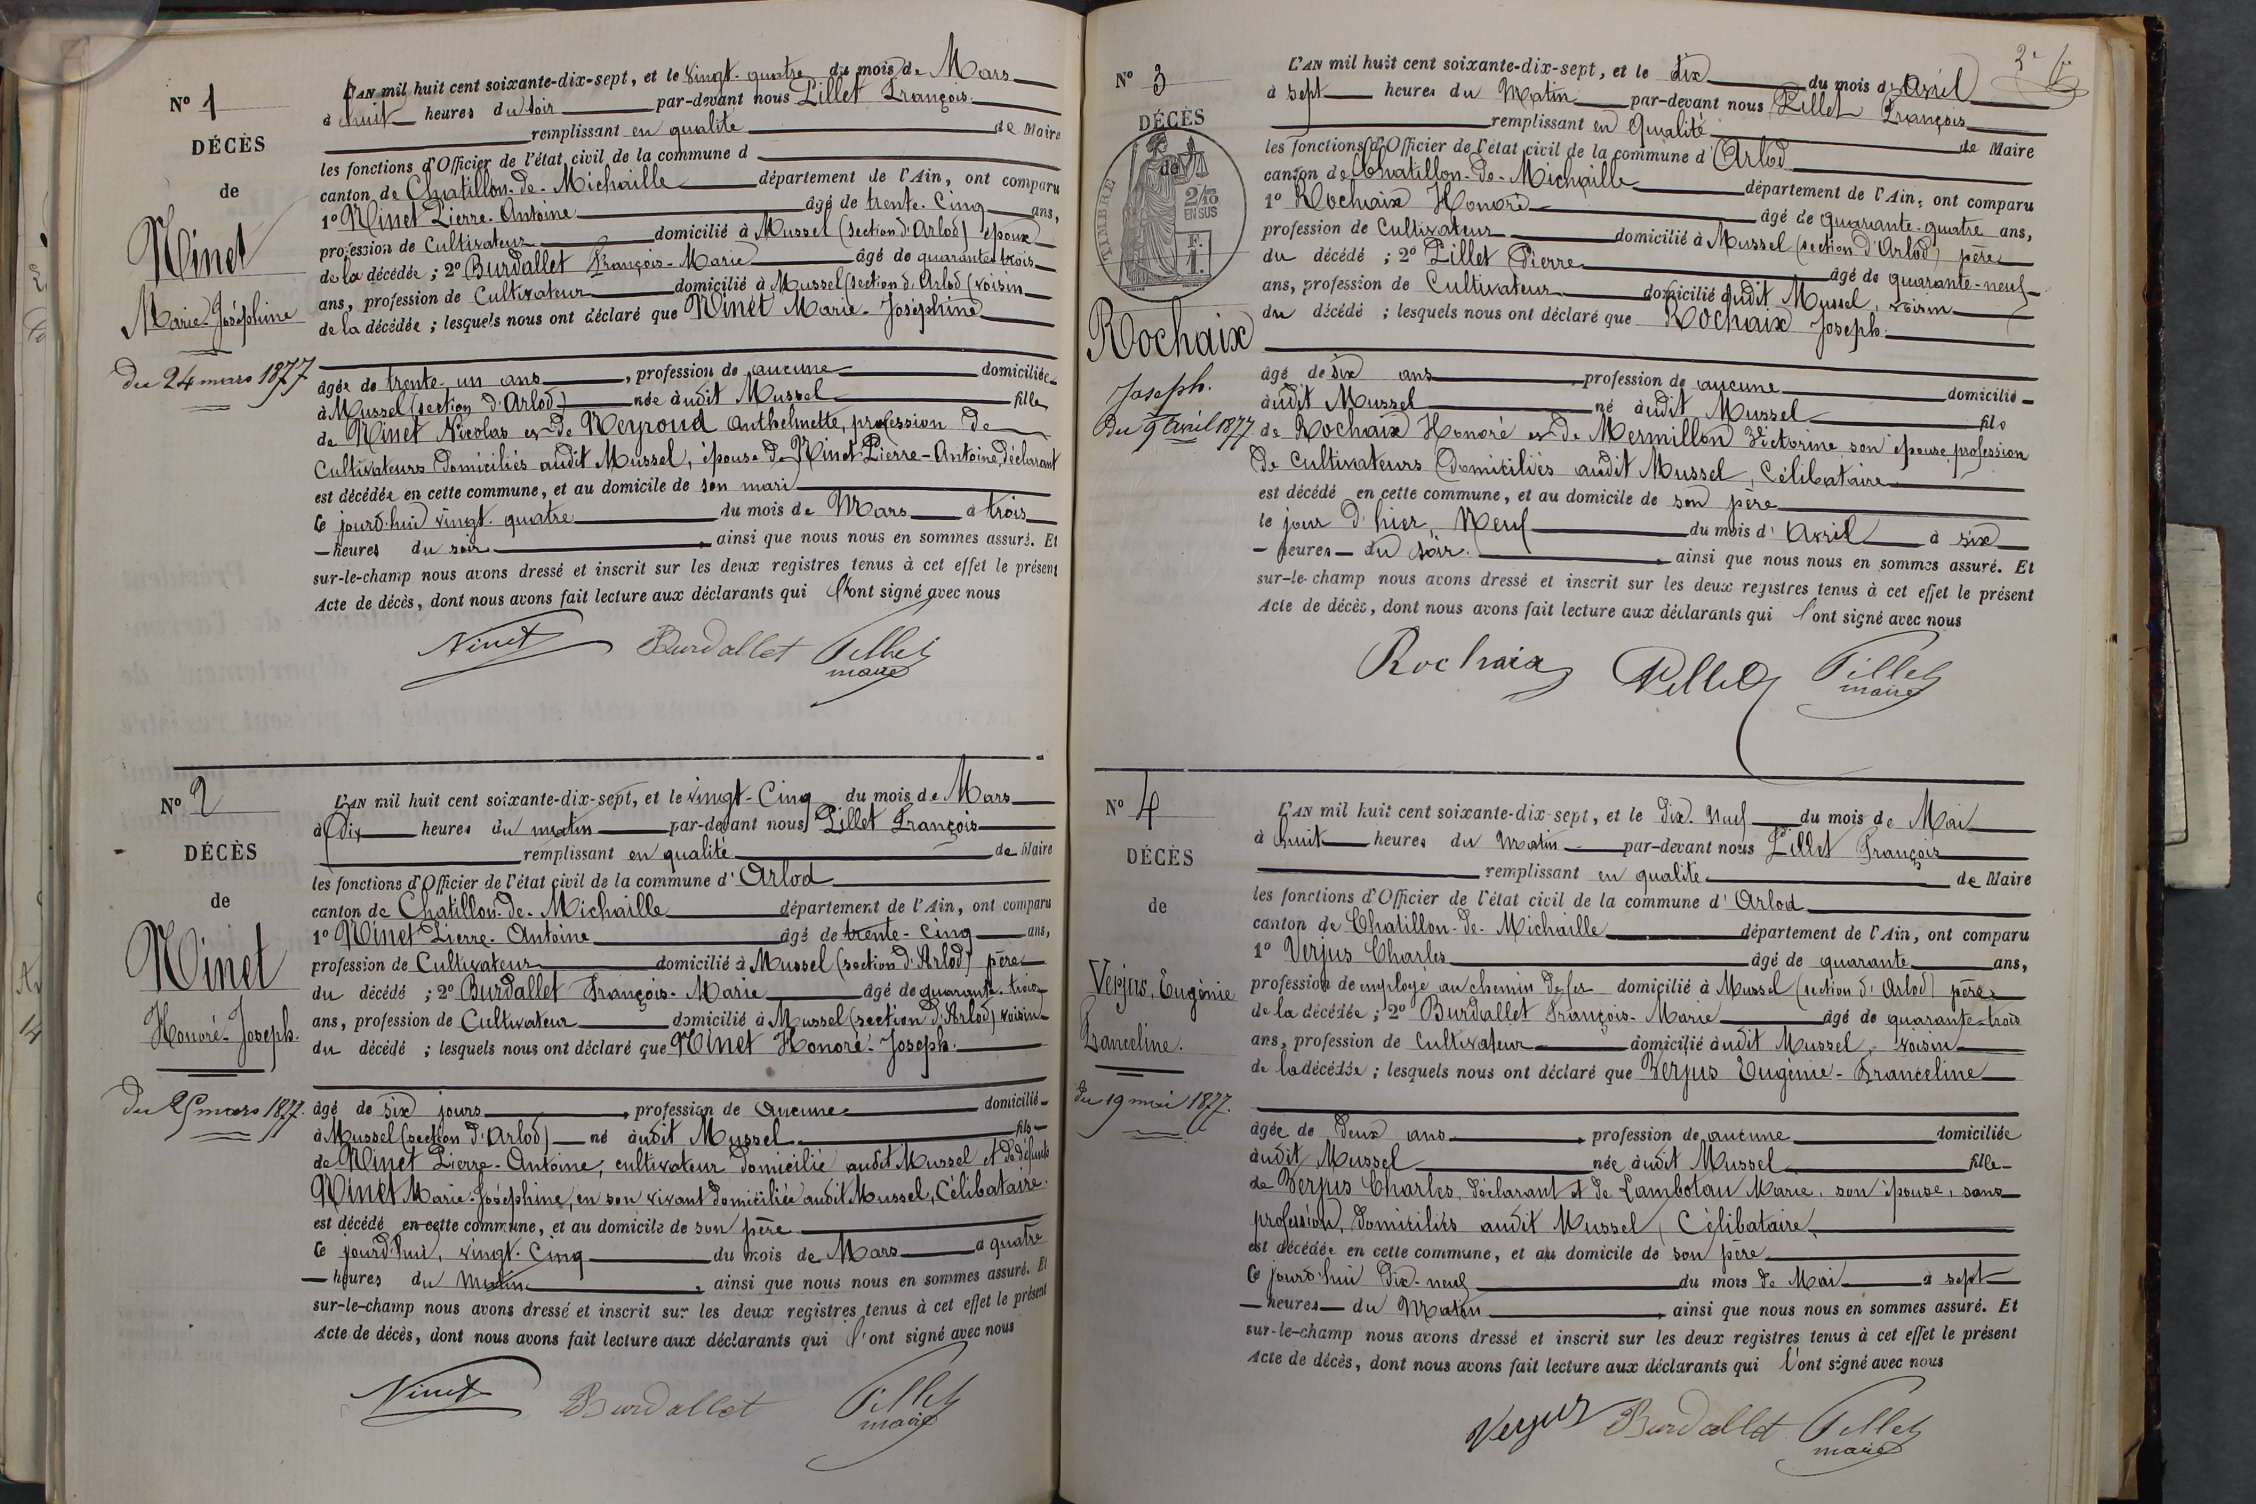 Nº 1
DÉCÈS
de
Ninet
Marie-Joséphine
du 24 mars 1877
L'AN mil huit cent soixante-dix-sept, et le vingt-quatre du mois de Mars
à huit heures du soir par-devant nous Pillet François
remplissant en qualité de Maire
les fonctions d'Officier de l'état civil de la commune d
canton de Chatillon-de-Michaille département de l'Ain, ont comparu
1º Ninet Pierre-Antoine âgé de trente-cinq ans,
profession de Cultivateur domicilié à Mussel (section d'Arlod) époux
de la décédée ; 2º Burdallet François-Marie âgé de quarante-trois
ans, profession de Cultivateur domicilié à Mussel (section d'Arlod) voisin
de la décédée ; lesquels nous ont déclaré que Ninet Marie-Joséphine
âgée de trente-un ans, profession de aucune domiciliée
à Mussel (section d'Arlod) née audit Mussel fille
de Ninet Nicolas et de Neyroud Anthelmette, profession de
Cultivateurs domiciliés audit Mussel, épouse de Ninet Pierre-Antoine, déclarant
est décédée en cette commune, et au domicile de son mari
Ce jourd'hui vingt-quatre du mois de Mars à trois
heures du soir, ainsi que nous nous en sommes assuré. Et
sur-le-champ nous avons dressé et inscrit sur les deux registres tenus à cet effet le présent
Acte de décès, dont nous avons fait lecture aux déclarants qui l'ont signé avec nous
Ninet Burdallet Pillet
maire
Nº 2
DÉCÈS
de
Ninet
Honoré-Joseph.
du 25 mars 1877.
L'AN mil huit cent soixante-dix-sept, et le vingt-Cinq du mois de Mars
à Dix heures du matin par-devant nous Pillet François
remplissant en qualité de Maire
les fonctions d'Officier de l'état civil de la commune d'Arlod
canton de Chatillon-de-Michaille département de l'Ain, ont comparu
1º Ninet Pierre-Antoine âgé de trente-cinq ans,
profession de Cultivateur domicilié à Mussel (section d'Arlod) père
du décédé ; 2º Burdallet François-Marie âgé de quarante-trois
ans, profession de Cultivateur domicilié à Mussel (section d'Arlod) voisin
du décédé ; lesquels nous ont déclaré que Ninet Honoré-Joseph.
âgé de six jours, profession de Aucune domicilié
à Mussel (section d'Arlod) né audit Mussel fils
de Ninet Pierre-Antoine, cultivateur domicilié audit Mussel et de défunte
Ninet Marie-Joséphine, en son vivant domiciliée audit Mussel, Célibataire.
est décédé en cette commune, et au domicile de son père
Ce jourd'hui, vingt-Cinq du mois de Mars à quatre
heures du Matin, ainsi que nous nous en sommes assuré. Et
sur-le-champ nous avons dressé et inscrit sur les deux registres tenus à cet effet le présent
Acte de décès, dont nous avons fait lecture aux déclarants qui l'ont signé avec nous
Ninet Burdallet Pillet
maire
Nº 3
DÉCÈS
de
TIMBRE
2/10
EN SUS
F.
1.
Rochaix
Joseph.
Du 9 Avril 1877
L'AN mil huit cent soixante-dix-sept, et le dix du mois d'Avril
à sept heures du Matin par-devant nous Pillet François
remplissant en Qualité de Maire
les fonctions d'Officier de l'état civil de la commune d'Arlod
canton de Chatillon-de-Michaille département de l'Ain, ont comparu
1º Rochaix Honoré âgé de quarante-quatre ans,
profession de Cultivateur domicilié à Mussel (section d'Arlod) père
du décédé ; 2º Pillet Pierre âgé de quarante-neuf
ans, profession de Cultivateur domicilié audit Mussel, voisin
du décédé ; lesquels nous ont déclaré que Rochaix Joseph.
âgé de six ans, profession de aucune domicilié
audit Mussel né audit Mussel fils
de Rochaix Honoré et de Mermillon Victorine son épouse, profession
de Cultivateurs domiciliés audit Mussel, Célibataire
est décédé en cette commune, et au domicile de son père
le jour d'hier, Neuf du mois d'Avril à six
heures du soir, ainsi que nous nous en sommes assuré. Et
sur-le-champ nous avons dressé et inscrit sur les deux registres tenus à cet effet le présent
Acte de décès, dont nous avons fait lecture aux déclarants qui l'ont signé avec nous
Rochaix Pillet Pillet
maire
Nº 4
DÉCÈS
de
Verjus, Eugénie
Franceline.
du 19 mai 1877.
L'AN mil huit cent soixante-dix-sept, et le dix-Neuf du mois de Mai
à huit heures du Matin par-devant nous Pillet François
remplissant en qualité de Maire
les fonctions d'Officier de l'état civil de la commune d'Arlod
canton de Chatillon-de-Michaille département de l'Ain, ont comparu
1º Verjus Charles âgé de quarante ans,
profession de employé au chemin de fer domicilié à Mussel (section d'Arlod) père
de la décédée ; 2º Burdallet François-Marie âgé de quarante-trois
ans, profession de Cultivateur domicilié audit Mussel, voisin
de la décédée ; lesquels nous ont déclaré que Verjus Eugénie-Franceline
âgée de Deux ans, profession de aucune domiciliée
audit Mussel née audit Mussel fille
de Verjus Charles, déclarant et de Lambotau Marie, son épouse, sans
profession, domiciliés audit Mussel, Célibataire,
est décédée en cette commune, et au domicile de son père
Ce jourd'hui dix-neuf du mois de Mai à sept
heures du Matin, ainsi que nous nous en sommes assuré. Et
sur-le-champ nous avons dressé et inscrit sur les deux registres tenus à cet effet le présent
Acte de décès, dont nous avons fait lecture aux déclarants qui l'ont signé avec nous
Verjus Burdallet Pillet
maire